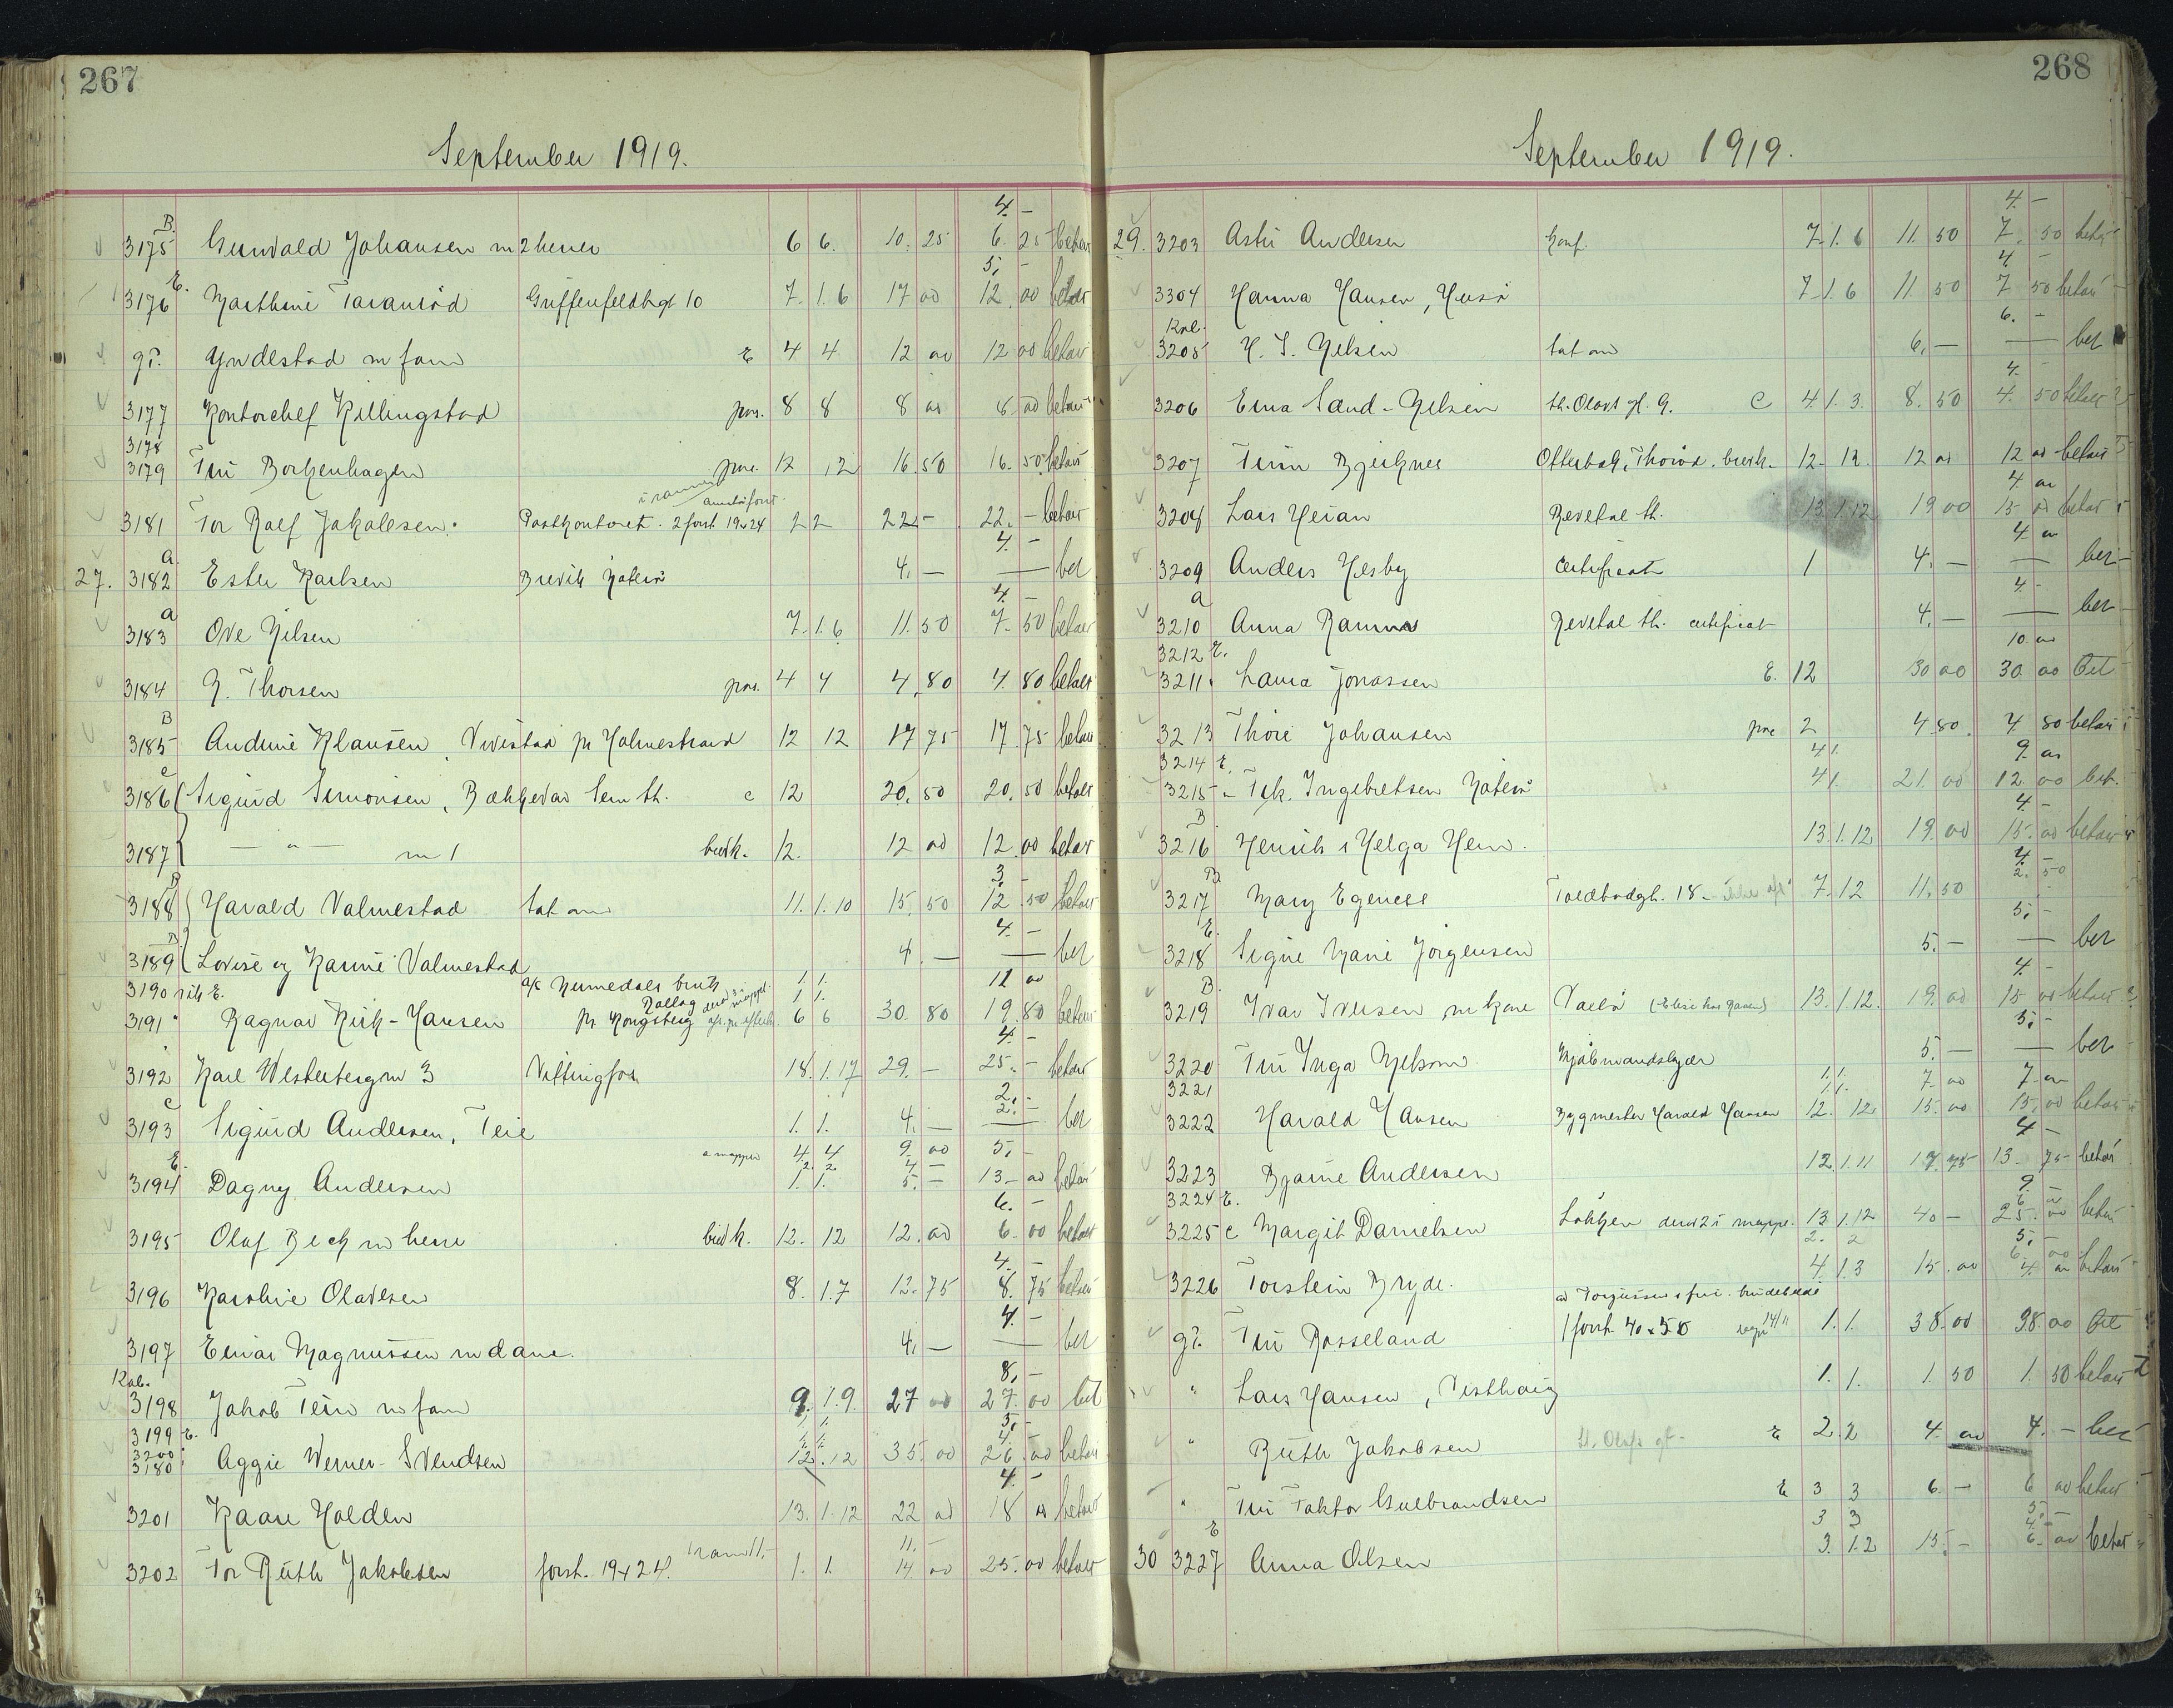 267
September 1919.
4. -
B.
3175 Gunvald Johansen m 2 herrer 6 6. 10. 25 6. 25 betalt
5. -
E.
3176 Marthine Taranrød Griffenfeldtsgt 10 7. 1. 6 17 00 12. 00 betalt
gr. Yndestad m fam E 4 4 12 00 12 00 betalt
3177 Kontorchef Killingstad pos. 8 8 8 00 8 00 betalt
3178
3179 Fru Borkenhagen pos. 12 12 16. 50 16. 50 betalt
3181 Tor Ralf Jakobsen. Postkontoret. 2 forst 19x24 2 2 22. - 22. - betalt
4. -
a.
27. 3182 Ester Karlsen Brevik Nøterø 4. - — bet
4. -
a
3183 Ove Nilsen 7. 1. 6 11. 50 7. 50 betalt
3184 G. Thorsen pos. 4 4 4. 80 4. 80 betalt
B
3185 Andrine Klausen, Vivestad pr Holmestrand 12 12 17 75 17. 75 betalt
c
3186 Sigurd Simonsen, Bækkevar Sem st. c 12 20. 50 20. 50 betalt
3187 — " — m 1 brevk. 12. 12 00 12. 00 betalt
3. -
B
3188 Harald Valmestad tat om 11. 1. 10 15. 50 12. 50 betalt
4. -
B
3189 Lovise og Karine Valmestad 4. - — bet
3190 rik E. a/c Numedals bruk 1. 1. 11 00
Rollag 1 1.
3191 Ragnar Rick-Hansen pr. Kongsberg 6 6 30. 80 19. 80 betalt
4. -
3192 Karl Westerberg m 3 Vittingfos 18. 1. 17 29. - 25. - betalt
2. -
c 2. -
3193 Sigurd Andersen, Teie 1. 1. 4. - — bet
a mappe 4. 4 9. 00 5. -
E. 2. 2. 4. -
3194 Dagny Andersen 1. 1. 5. - 13. 00 betalt
6. -
3195 Olaf Beck m herre brevk. 12. 12 12. 00 6. 00 betalt
4. -
3196 Karoline Olavesen 8. 1. 7 12. 75 8. 75 betalt
4. -
3197 Einar Magnussen m dame. 4. - — bet
Kab. 8. -
3198 Jakob Teien m fam 9. 1. 9. 27 00 27. 00 bet
3199 E. 5. -
3200 4. -
3180 Aggie Werner-Svendsen 12. 12 35. 00 26. 00 betalt
4. -
3201 Kaare Holden 13. 1. 12 22 00 18 00 betalt
11. -
3202 Tor Ruth Jakobsen forst. 19x24. 1. 1. 14 00 25. 00 betalt
268
September 1919.
4. -
29. 3203 Astri Andersen Konf. 7. 1. 6 11. 50 7. 50 betalt
4. -
3304 Hanna Hansen, Husø 7. 1. 6 11. 50 7 50 betalt
Kab. 6. -
3205 H. S. Nilsen tat om 6. - — bet
4.
3206 Erna Sand-Nilsen St. Olavs gt. 9. C 4 1. 3. 8. 50 4. 50 betalt
3207 Finn Bjerknes Ofterbak, Thorød. brevk. 12. 12. 12 00 12 00 betalt
4 00
3208 Lars Heian Revetal st. 13. 1. 12 19 00 15 00 betalt
4. 00
3209 Anders Hesby Certificat 1 4. - — bet
4. -
a
3210 Anna Ramnæs Revetal st. certificat 4. - — bet
3212 E. 10. 00
3211. Laura Jonassen E. 12 30 00 30. 00 Bet
3213 Thore Johansen pos 2 4 80. 4 80 betalt
3214 E. 4 1. 9. 00
3215 Frk. Ingebretsen Nøterø 4 1. 21. 00 12. 00 bet.
4. -
B
3216 Henrik & Helga Hem. 13. 1. 12. 19. 00 15. 00 betalt
4. -
B 2. 50
3217 Mary Egenes Toldbodgt. 18. 7. 12 11. 50
5. -
E.
3218 Signe Marie Jørgensen 5. - — bet
4. -
B.
3219 Ivar Iversen m kone Valø 13. 1. 12. 19. 00 15 00 betalt
5. -
3220 Fru Inga Nelson Kjøbmandskjær 5. - — bet
3221 1. 1. 7. 00 7. 00
3222 Harald Hansen Bygmester Harald Hansen 12. 12. 15. 00 15. 00 betalt
4. -
3223 Bjarne Andersen 12. 1. 11 17 75 13. 75 betalt
3224 E. 9. -
6. 00
3225 c Margit Danielsen Løkken derav 2 i mappe. 13. 1. 12 40 - 25. 00 betalt
2. 2 5. -
6. 00
3226 Torstein Bryde. 4. 1. 3 15. 00 4. 00 betalt
av Torgussen & frue. brudebillede
gr. Fru Rosseland 1 forst 40x50 1. 1. 38. 00 38. 00 Bet
" Lars Hansen, Vesthaug 1. 1. 1. 50 1. 50 betalt
" Ruth Jakobsen St. Olafs gt. E 2. 2 4. 00 4. - bet
" Fru Faktor Gulbrandsen E 3 3 6. - 6 00 betalt
3 3 5. -
E 4. -
30 3227 Anna Olsen 3. 1. 2 15. - 6. 00 betalt